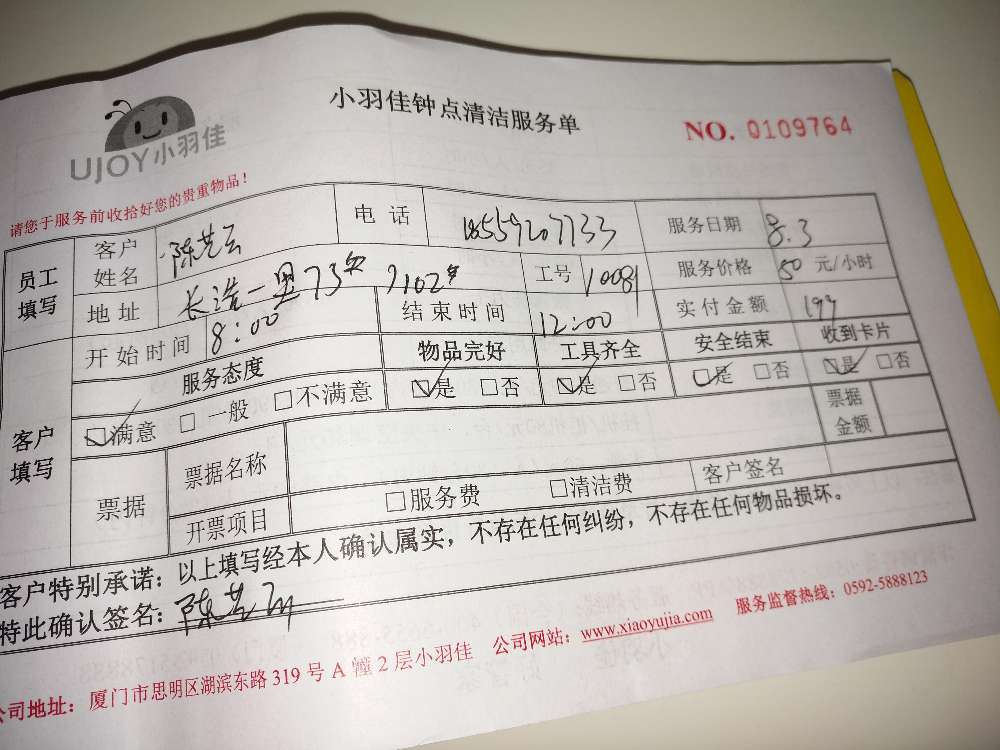 小羽佳钟点清洁服务单
NO. 0109764
UJOY小羽佳
请您于服务前收拾好您的贵重物品！
员工填写 客户姓名 陈芝云 电话 18559207733 服务日期 8.3
地址 长浩一里73号 1102室 工号 10081 服务价格 50 元/小时
开始时间 8:00 结束时间 12:00 实付金额 199
客户填写 服务态度 物品完好 工具齐全 安全结束 收到卡片
☑满意 □一般 □不满意 ☑是 □否 ☑是 □否 ☑是 □否 ☑是 □否
票据 票据名称 票据金额
开票项目 □服务费 □清洁费 客户签名
客户特别承诺：以上填写经本人确认属实，不存在任何纠纷，不存在任何物品损坏。
特此确认签名：陈芝云
公司地址：厦门市思明区湖滨东路319号A幢2层小羽佳 公司网站：www.xiaoyujia.com 服务监督热线：0592-5888123